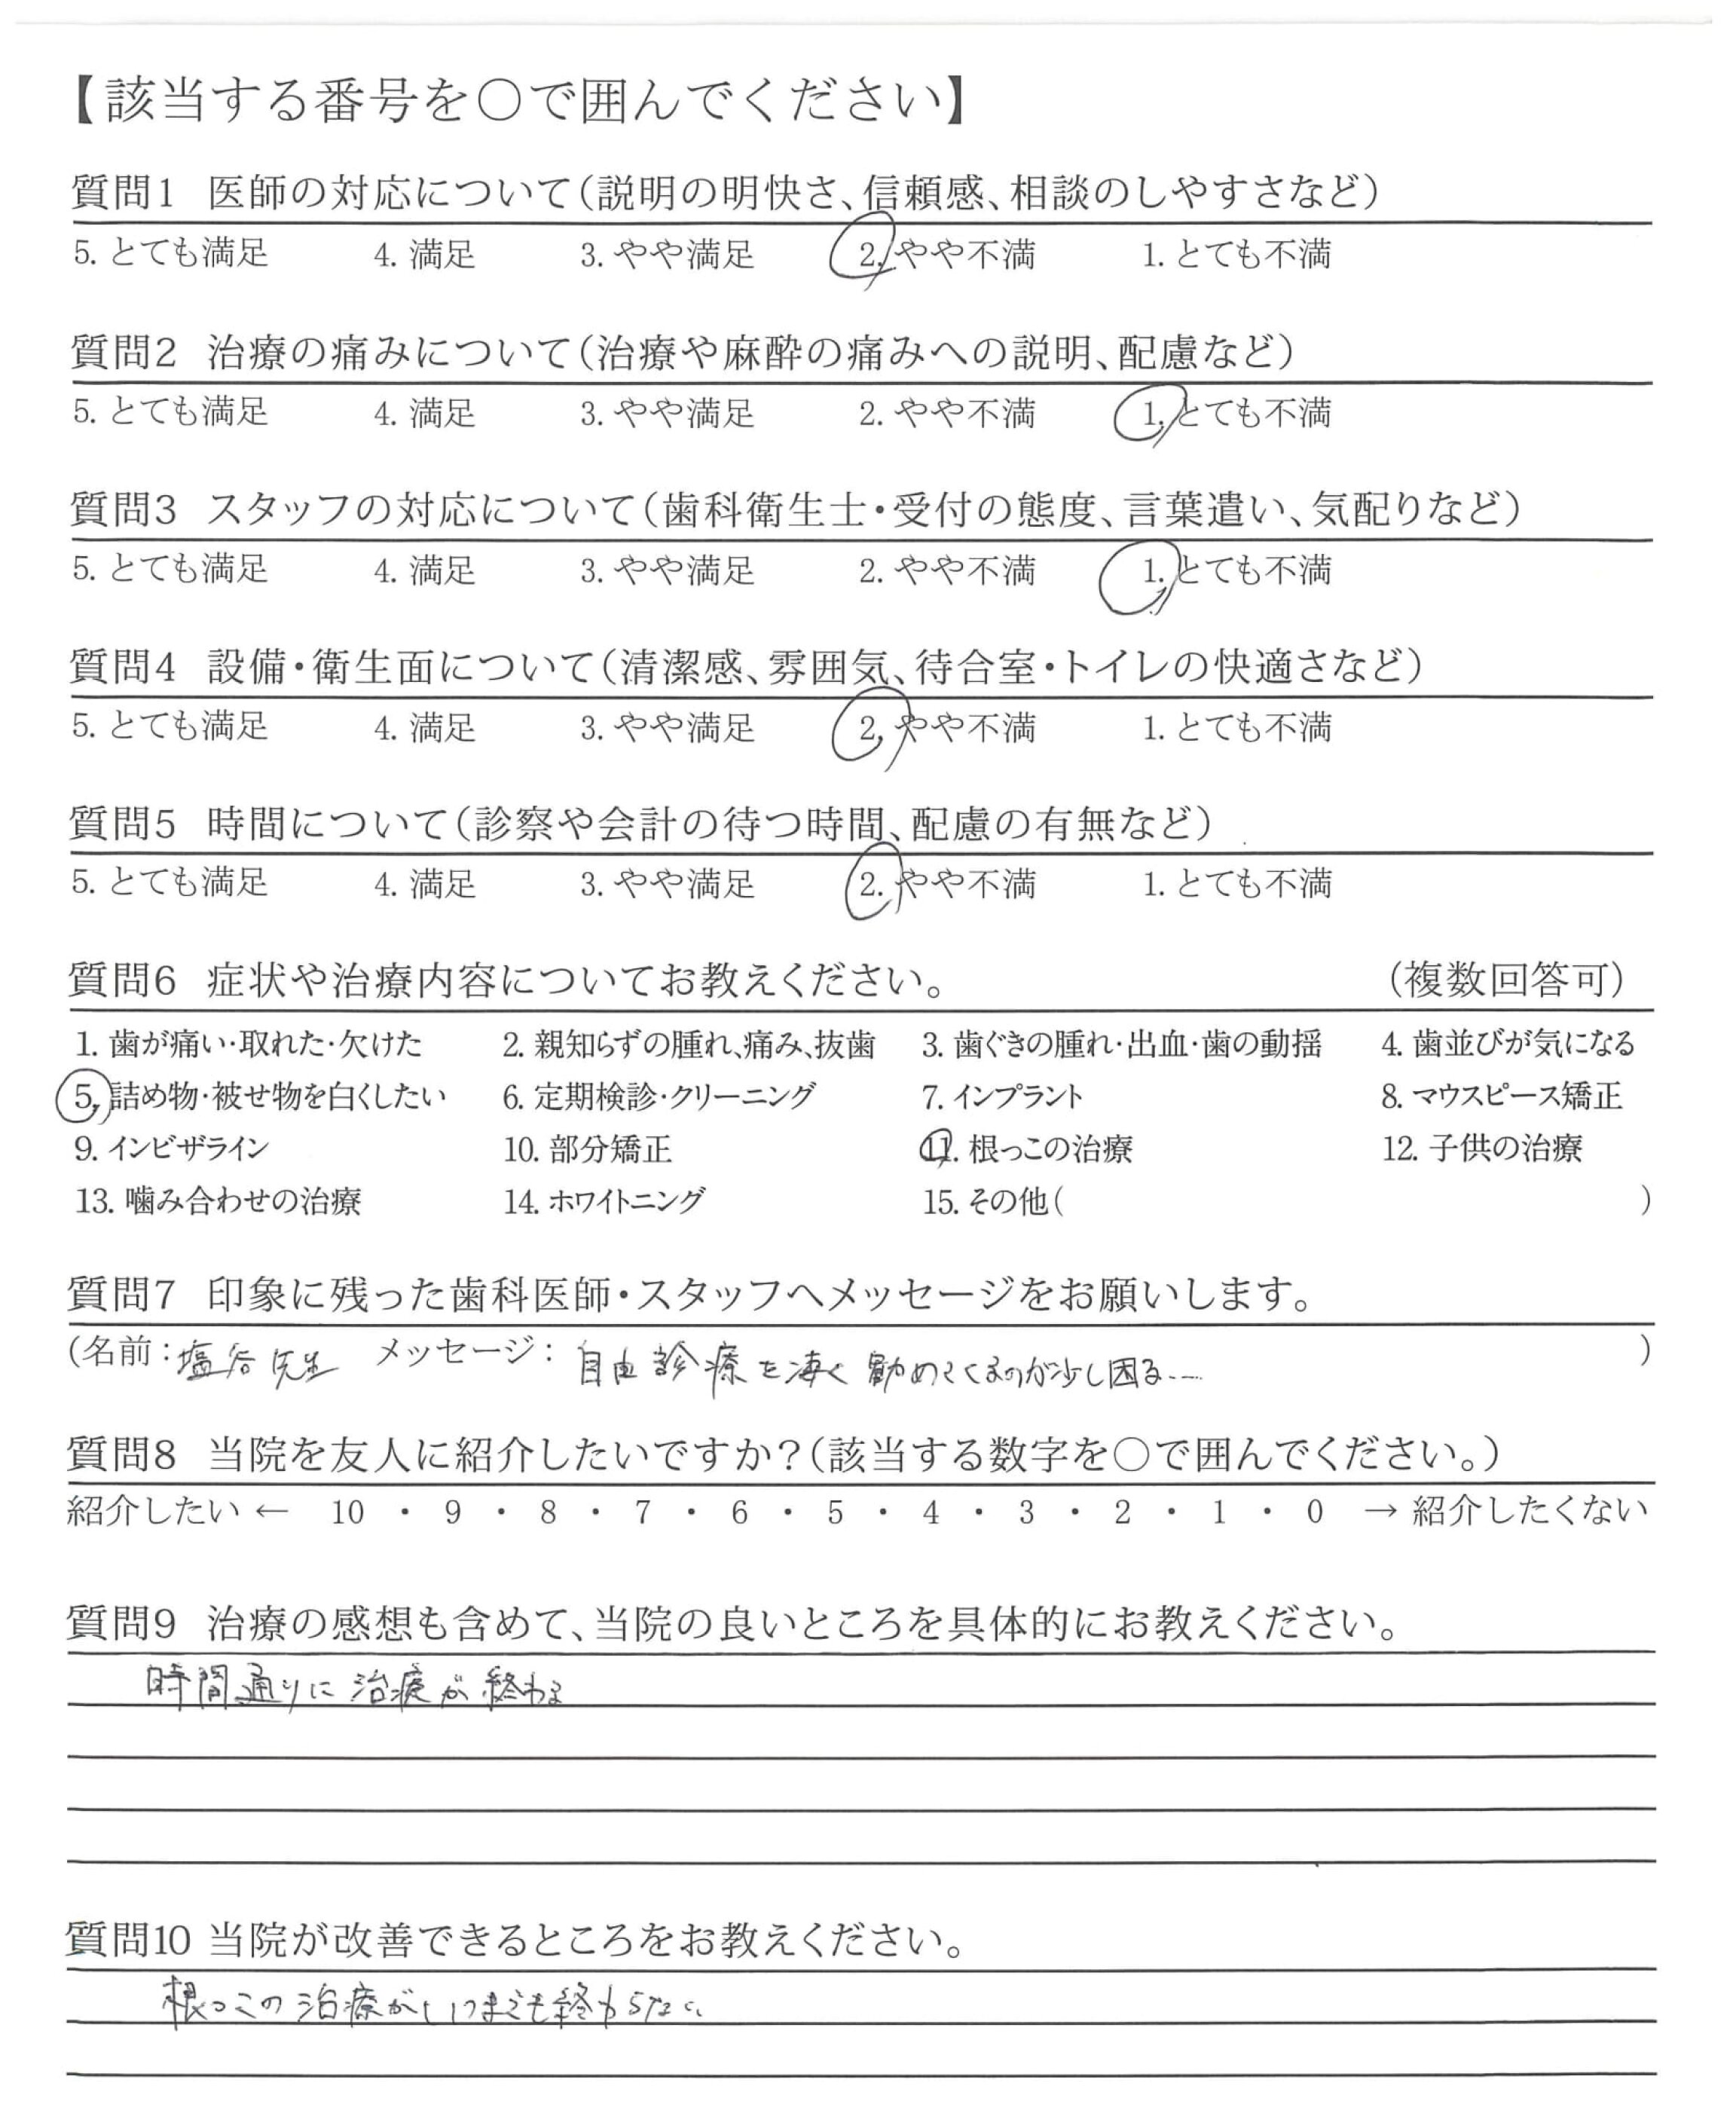 【該当する番号を○で囲んでください】
質問1 医師の対応について(説明の明快さ、信頼感、相談のしやすさなど)
5. とても満足 4. 満足 3. やや満足 2. やや不満 1. とても不満
質問2 治療の痛みについて(治療や麻酔の痛みへの説明、配慮など)
5. とても満足 4. 満足 3. やや満足 2. やや不満 1. とても不満
質問3 スタッフの対応について(歯科衛生士・受付の態度、言葉遣い、気配りなど)
5. とても満足 4. 満足 3. やや満足 2. やや不満 1. とても不満
質問4 設備・衛生面について(清潔感、雰囲気、待合室・トイレの快適さなど)
5. とても満足 4. 満足 3. やや満足 2. やや不満 1. とても不満
質問5 時間について(診察や会計の待つ時間、配慮の有無など)
5. とても満足 4. 満足 3. やや満足 2. やや不満 1. とても不満
質問6 症状や治療内容についてお教えください。 (複数回答可)
1. 歯が痛い・取れた・欠けた 2. 親知らずの腫れ、痛み、抜歯 3. 歯ぐきの腫れ・出血・歯の動揺 4. 歯並びが気になる
5. 詰め物・被せ物を白くしたい 6. 定期検診・クリーニング 7. インプラント 8. マウスピース矯正
9. インビザライン 10. 部分矯正 11. 根っこの治療 12. 子供の治療
13. 噛み合わせの治療 14. ホワイトニング 15. その他( )
質問7 印象に残った歯科医師・スタッフへメッセージをお願いします。
(名前：塩谷先生 メッセージ：自由診療を凄く勧めてくるのが少し困る…)
質問8 当院を友人に紹介したいですか？(該当する数字を○で囲んでください。)
紹介したい ← 10 ・ 9 ・ 8 ・ 7 ・ 6 ・ 5 ・ 4 ・ 3 ・ 2 ・ 1 ・ 0 → 紹介したくない
質問9 治療の感想も含めて、当院の良いところを具体的にお教えください。
時間通りに治療が終わる
質問10 当院が改善できるところをお教えください。
根っこの治療がいつまでも終わらない